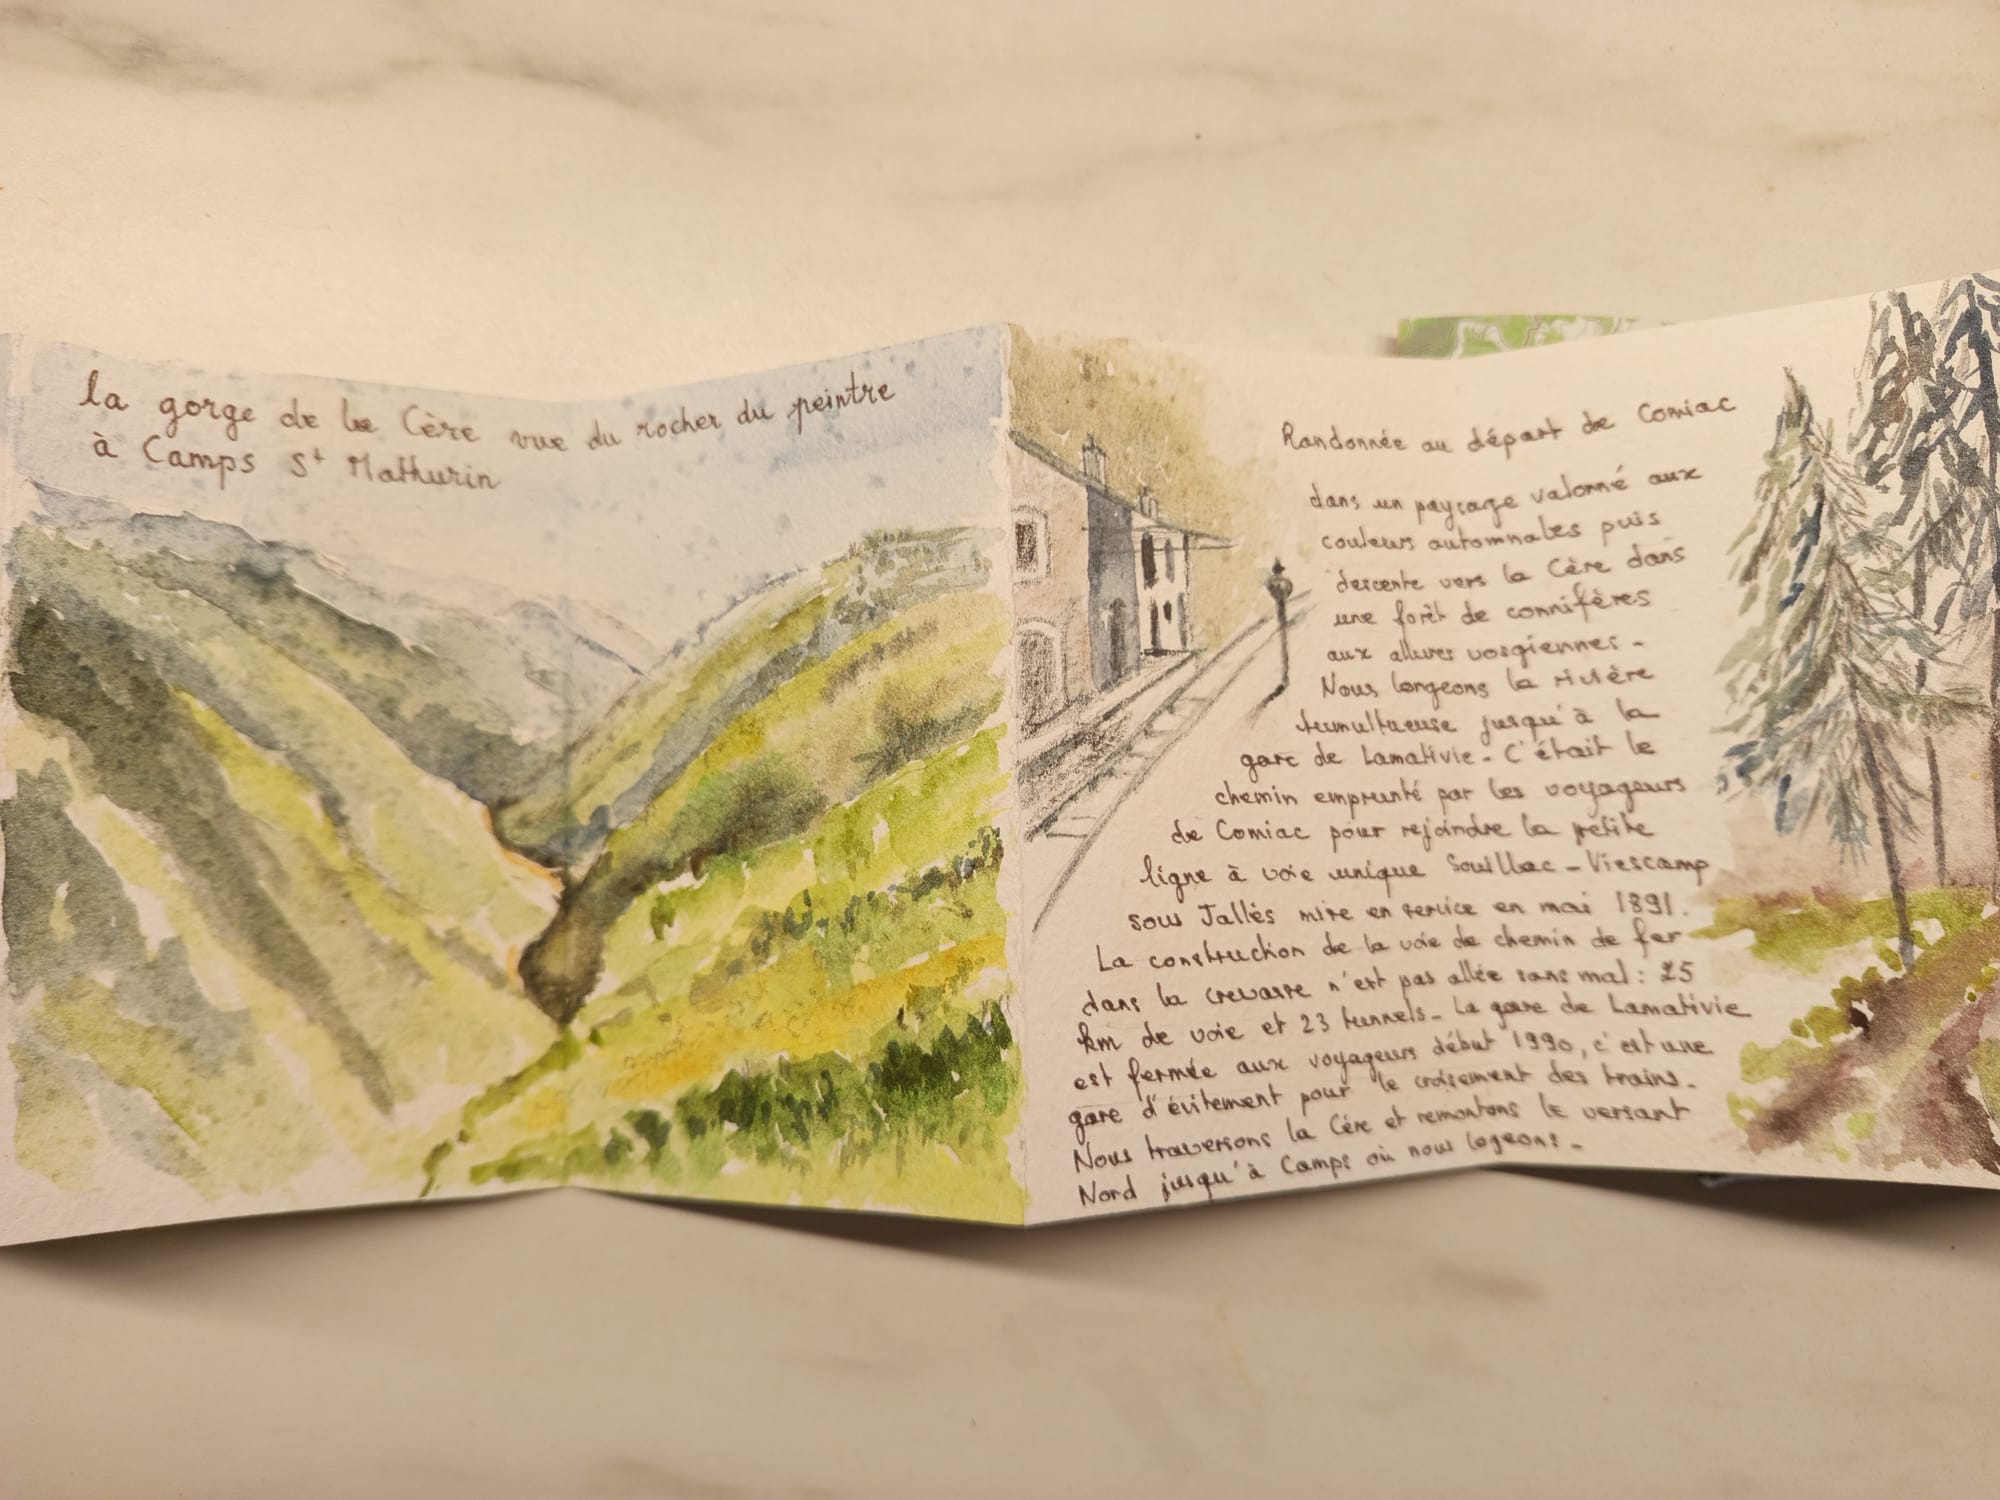 la gorge de la Cère vue du rocher du peintre
à Camps St Mathurin
Randonnée au départ de Comiac
dans un paysage valonné aux
couleurs automnales puis
descente vers la Cère dans
une forêt de connifères
aux allures vosgiennes -
Nous longeons la rivière
tumultueuse jusqu'à la
gare de Lamativie - C'était le
chemin emprunté par les voyageurs
de Comiac pour rejoindre la petite
ligne à voie unique Souillac - Viescamp
sous Jallès mise en service en mai 1891.
La construction de la voie de chemin de fer
dans la crevasse n'est pas allée sans mal : 25
km de voie et 23 tunnels - La gare de Lamativie
est fermée aux voyageurs début 1990, c'est une
gare d'évitement pour le croisement des trains.
Nous traversons la Cère et remontons le versant
Nord jusqu'à Camps où nous logeons -